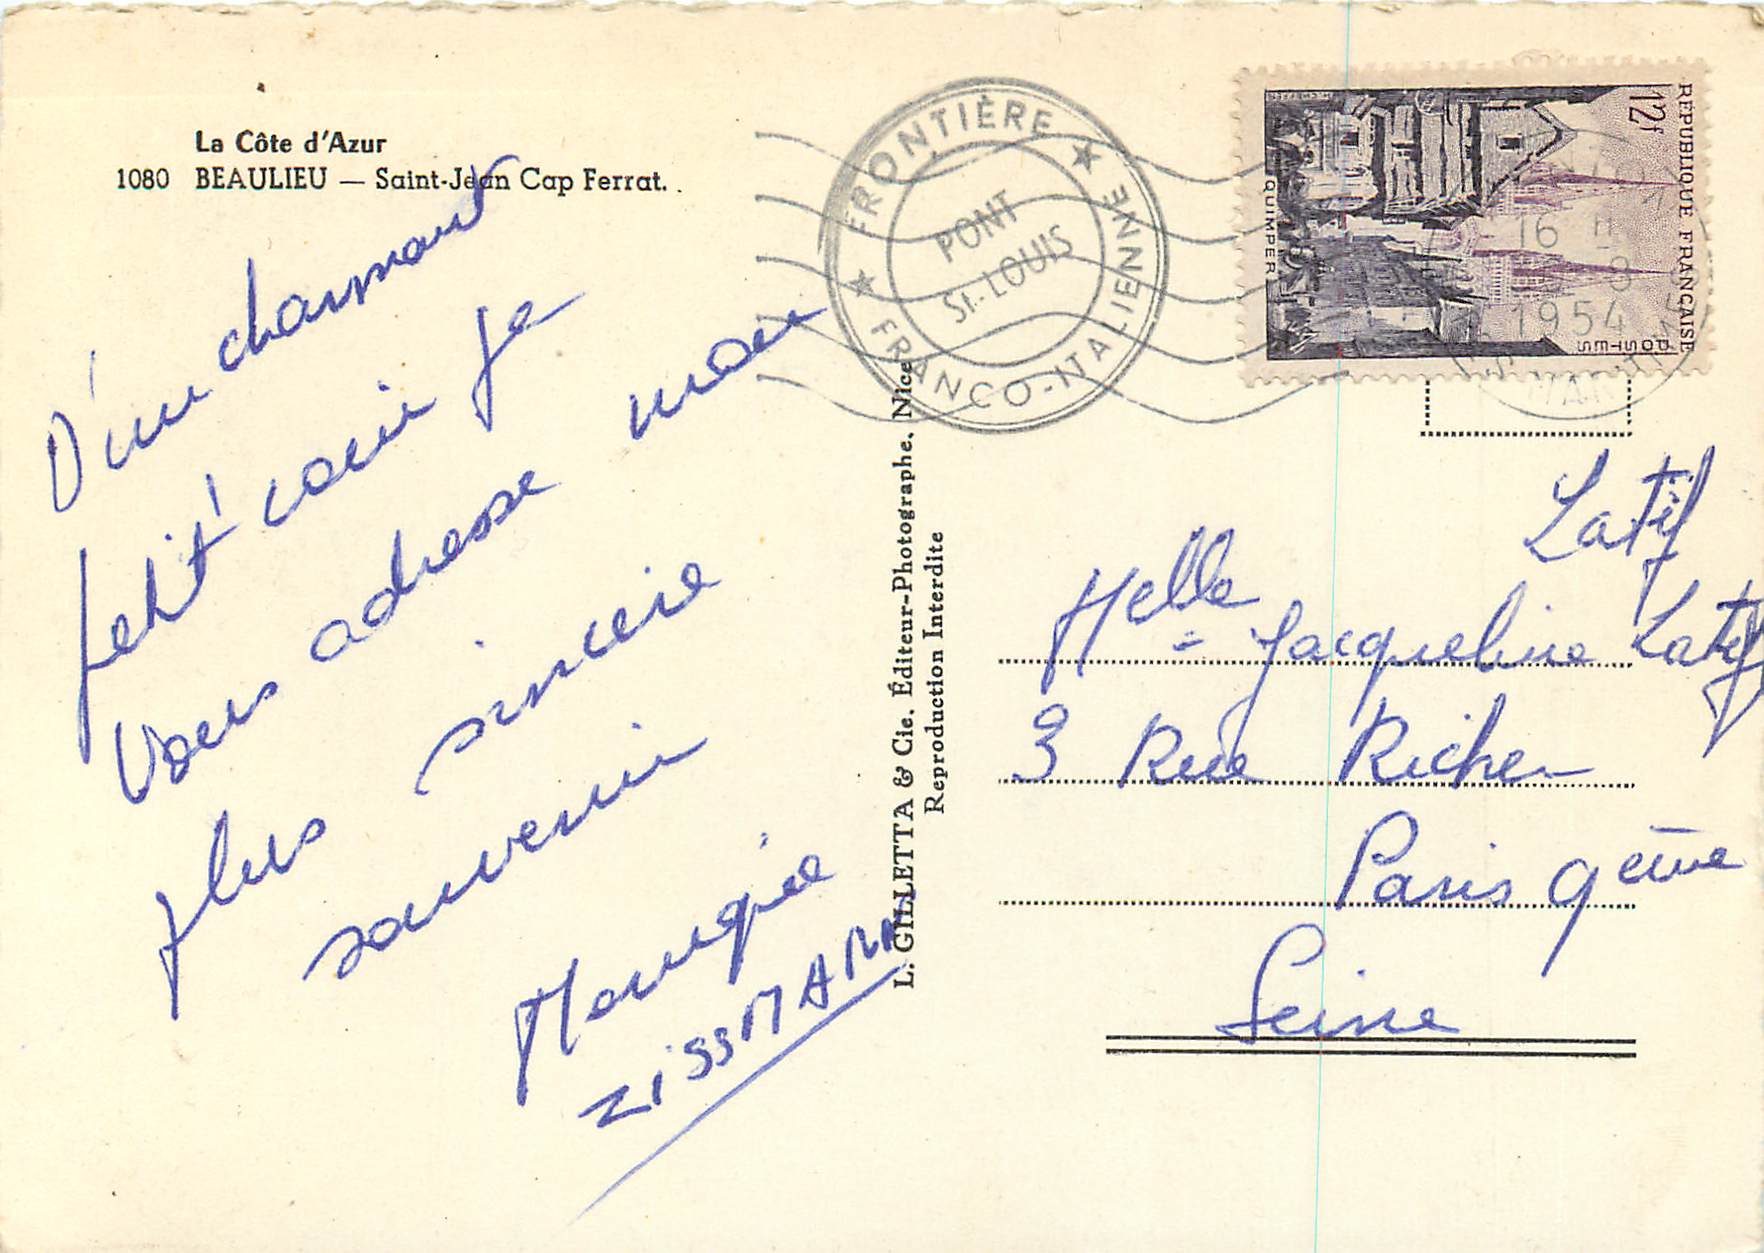 La Côte d'Azur
1080 BEAULIEU — Saint-Jean Cap Ferrat.
D'un charmant
petit coin je
vous adresse mon
plus sincère
souvenir
ZISSMANN
L. GILLETTA & Cie. Éditeur-Photographe, Nice
Reproduction Interdite
FRONTIÈRE
FRANCO-ITALIENNE
PONT
St-LOUIS
RÉPUBLIQUE FRANÇAISE
POSTES
12f
QUIMPER
16 H
8
1954
Latif
Melle Jacqueline Latif
3 Rue Richer
Paris 9ème
Seine